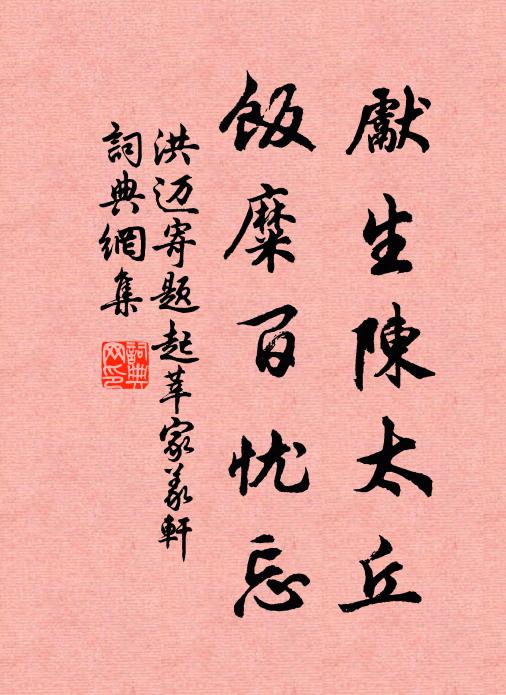 獻生陳太丘
飯糜百忧忘
洪迈寄题起莘家羕軒
詞典網集
詞典網印